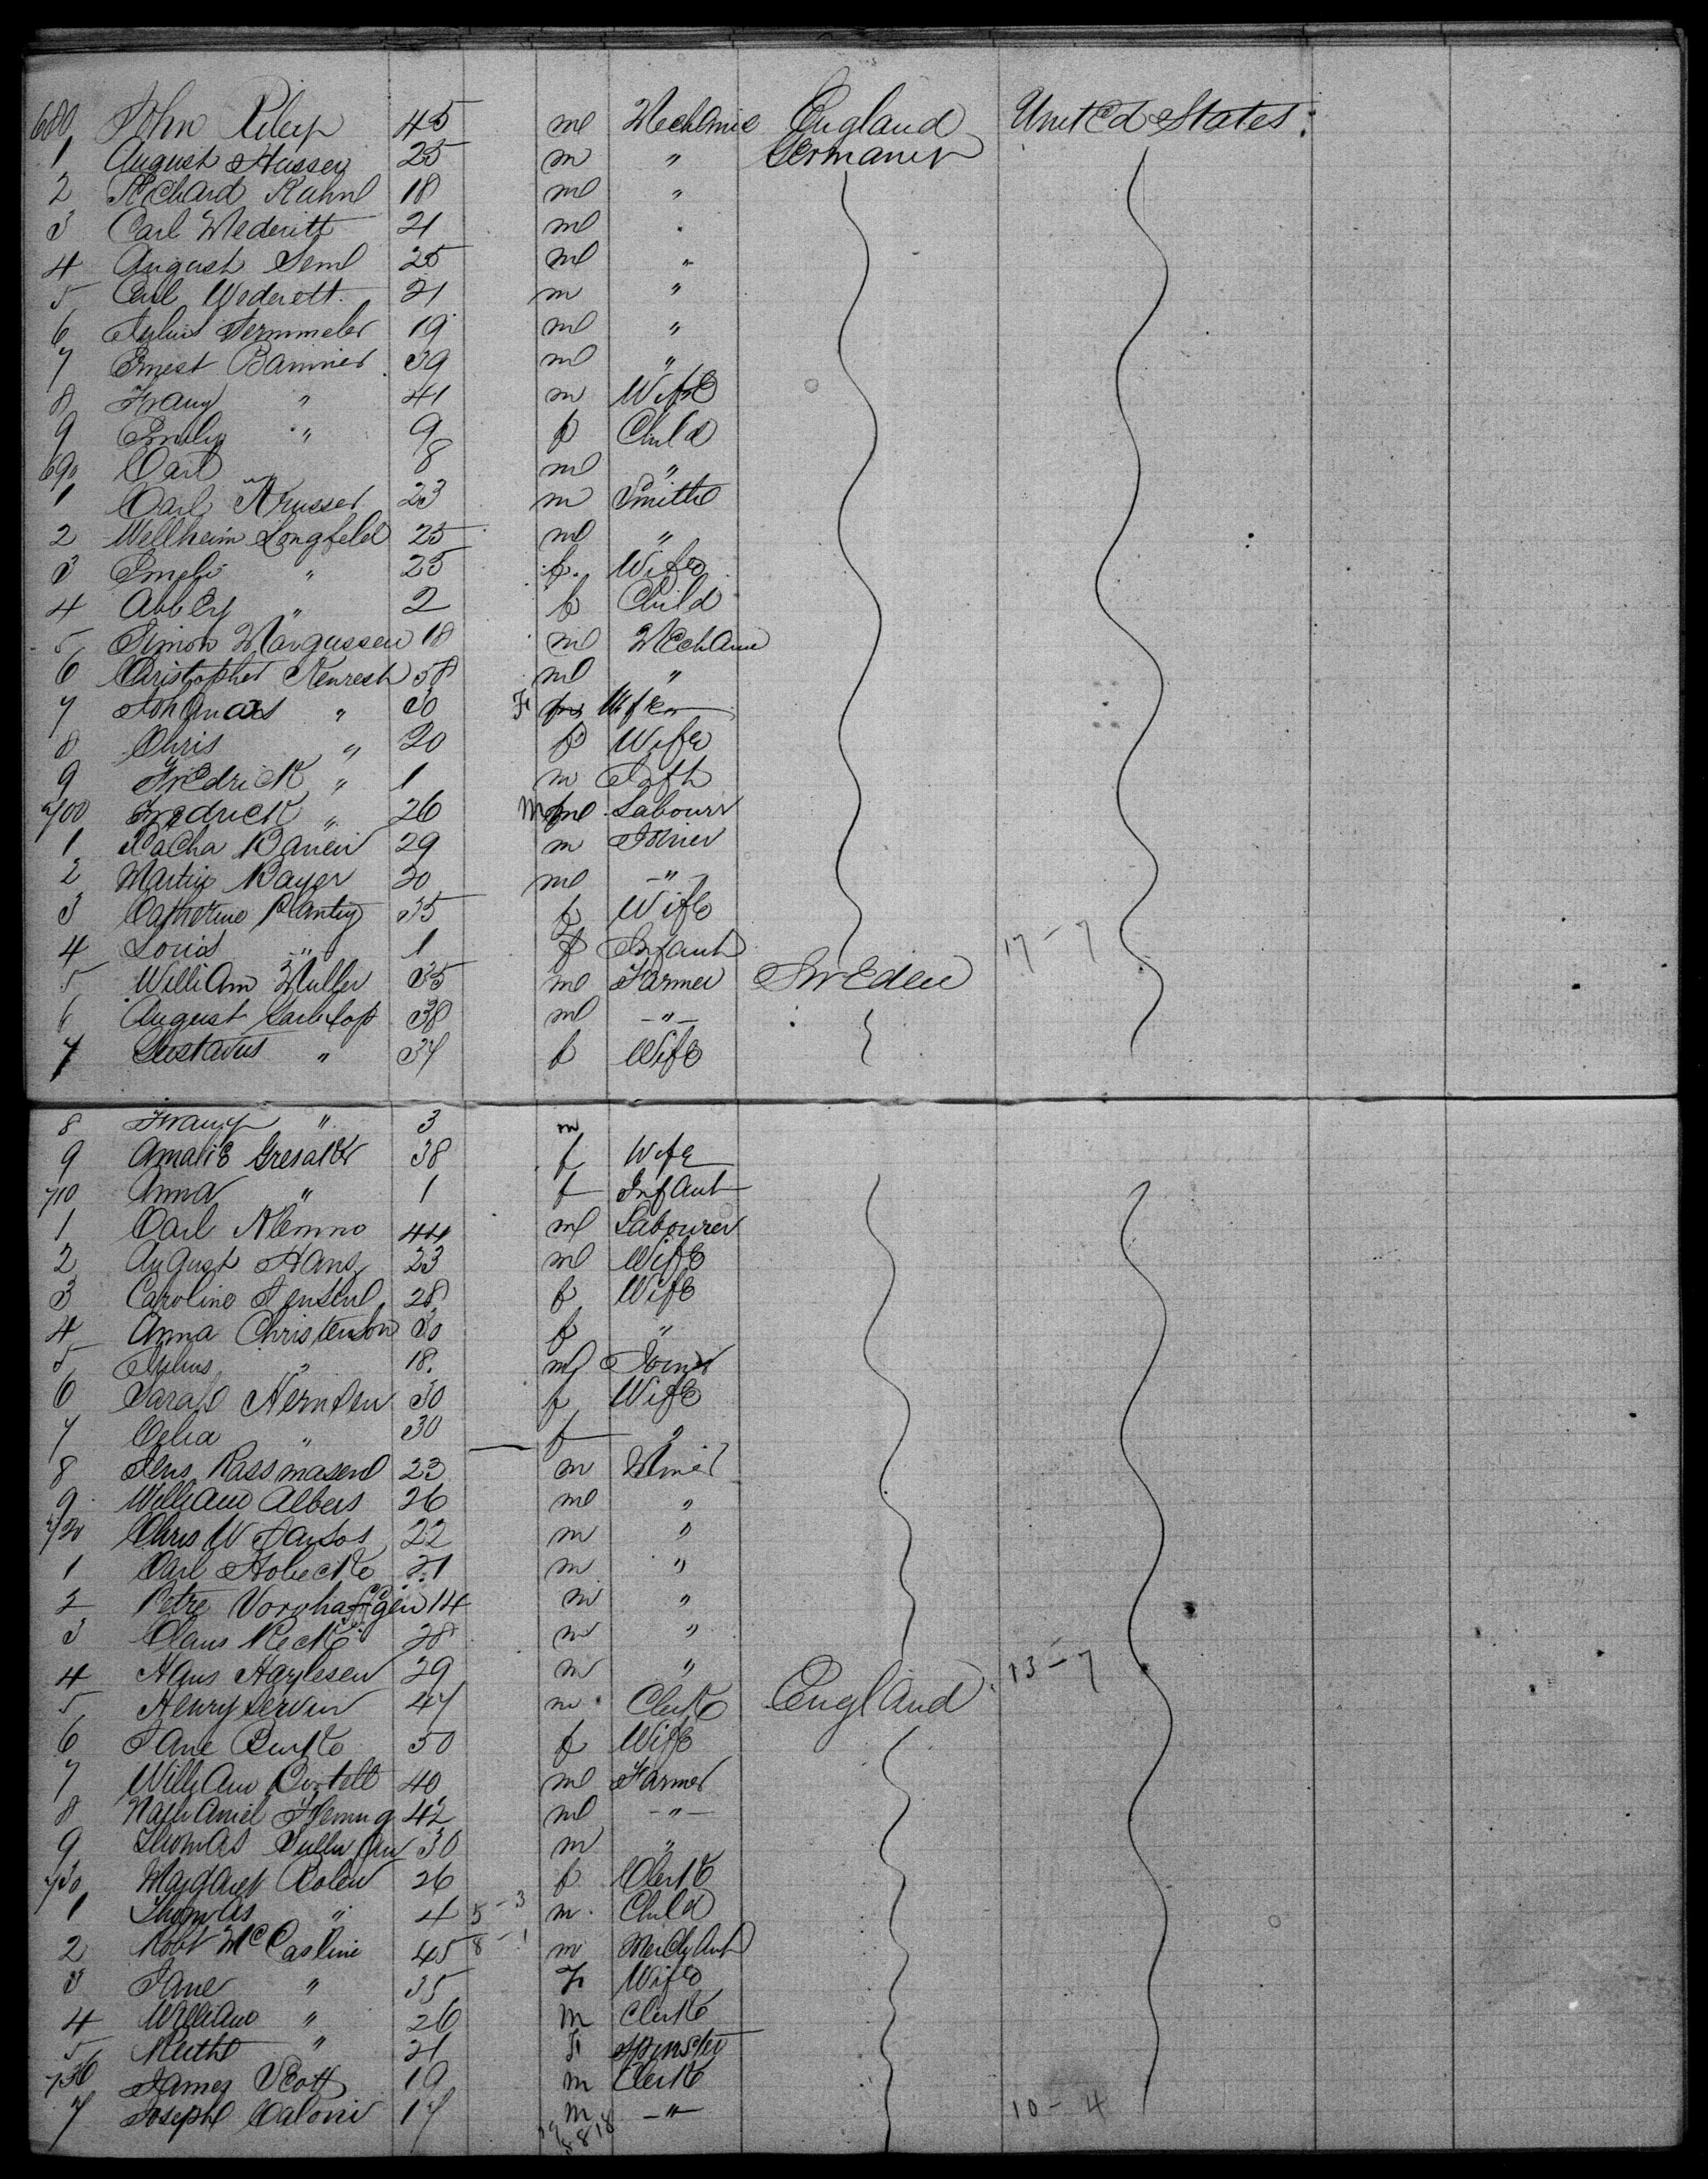 680 John Riley 45 m Mechanic England United States
1 August Hassen 25 m " Germaney
2 Richard Kahn 18 m "
3 Carl Mederitt 21 m "
4 August Seml 25 m "
5 Carl Wederett 21 m "
6 Julius 19 m "
7 Ernest Banmier 39 m "
8 Franz " 41 m Wife
9 Emily " 9 f Child
690 Carl " 8 m "
1 Carl Krusser 23 m Smith
2 Wellheim Longfeld 25 m "
3 Emeli " 25 f Wife
4 Abbey " 2 f Child
5 Simon Margussen 18 m Mechanic
6 Christopher Kenresh 58 m "
7 Johanas " 30 F Wife
8 Chris " 20 f Wife
9 Fredrick " 1 m Infh
700 Fredrick " 26 M Labourr
1 Pacha 29 m Joiner
2 Martin Bayer 20 m "
3 Catherine Plantz 35 f Wife
4 Louis " 1 f Infant 17-7
5 William Muller 35 m Farmer Sweden
6 August 38 m "
7 Gustavus " 37 f Wife
8 Franz " 3 m
9 Amalie Gresaker 38 f Wife
710 Anna " 1 f Infant
1 Carl Klemmo 44 m Labourer
2 August Hans 23 m Wife
3 Caroline Jensen 28 f Wife
4 Anna Christenson 30 f "
5 Julius " 18 m Joiner
6 Sarah Hernsen 30 f Wife
7 Celia " 30 f "
8 Jens Rassmasend 23 m Miner
9 William Albers 26 m "
720 Chris W 22 m "
1 Carl Hobecke 21 m "
2 Petre 14 m "
3 Claus Keck 28 m "
4 Hans Haylesen 29 m " 13-7
5 Henry Servin 47 m Clerk England
6 Jane Burke 50 f Wife
7 William Costell 40 m Farmer
8 Nathaniel Fleming 42 m "
9 Thomas Sullivan 30 m "
730 Margaret Bolen 26 f Clerk
1 Thomas " 4 5-3 m Child
2 Robt McCasline 45 8-1 m Merchant
3 Jane " 35 F Wife
4 William " 26 m Clerk
5 Ruth " 21 F Spinster
736 James Scott 19 m Clerk
7 Joseph Caloni 17 m " 10-4